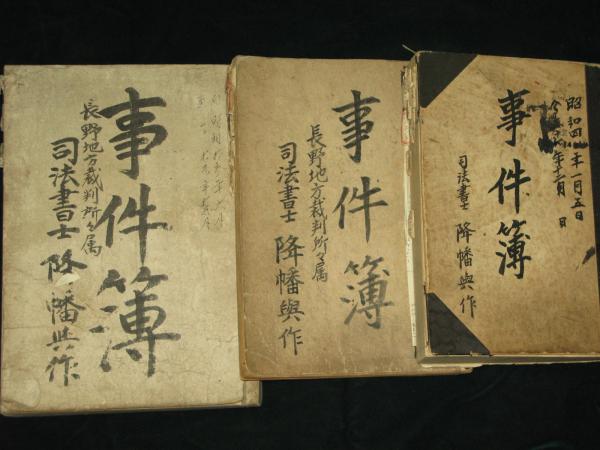 事件簿
長野地方裁判所々属
司法書士 降幡與作
事件簿
長野地方裁判所々属
司法書士 降幡與作
昭和四年一月五日
年十二月 日
事件簿
司法書士 降幡與作